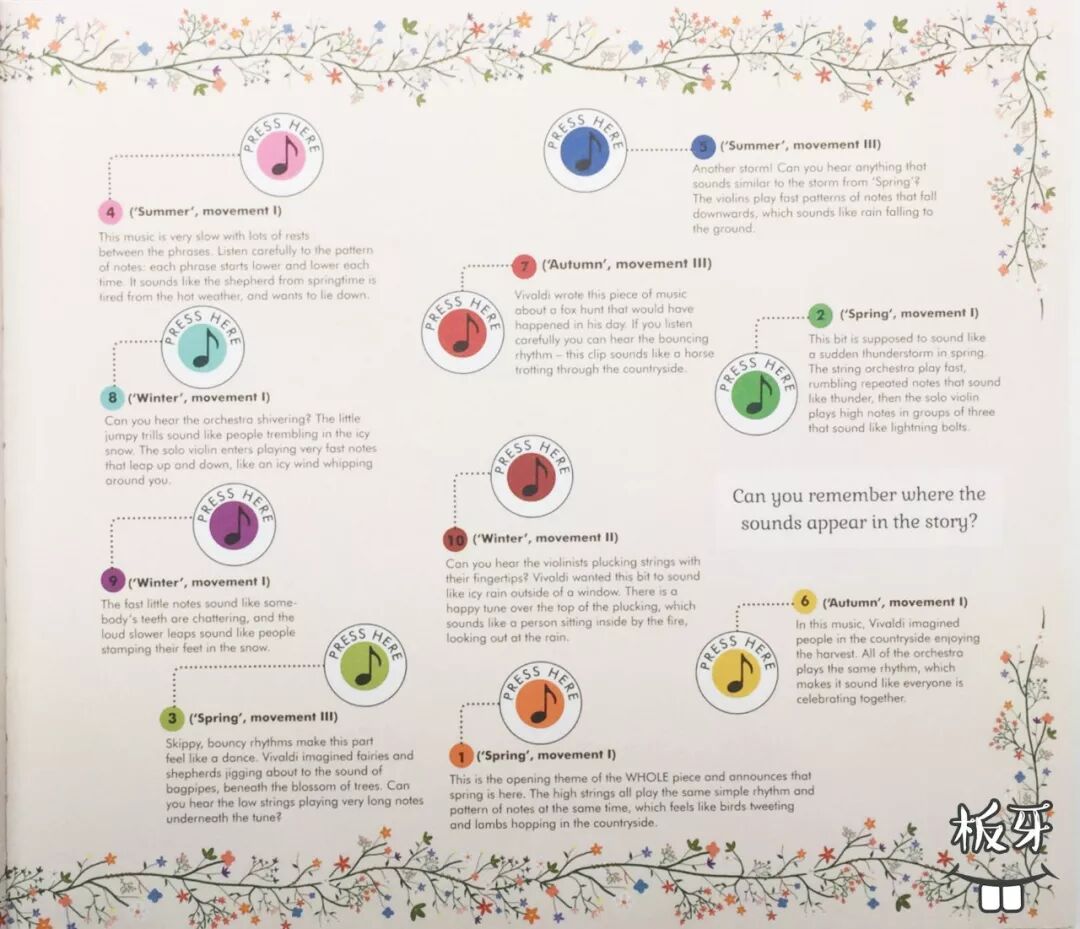 PRESS HERE
4 ('Summer', movement I)
This music is very slow with lots of rests
between the phrases. Listen carefully to the pattern
of notes: each phrase starts lower and lower each
time. It sounds like the shepherd from springtime is
tired from the hot weather, and wants to lie down.
PRESS HERE
5 ('Summer', movement III)
Another storm! Can you hear anything that
sounds similar to the storm from 'Spring'?
The violins play fast patterns of notes that fall
downwards, which sounds like rain falling to
the ground.
PRESS HERE
7 ('Autumn', movement III)
Vivaldi wrote this piece of music
about a fox hunt that would have
happened in his day. If you listen
carefully you can hear the bouncing
rhythm – this clip sounds like a horse
trotting through the countryside.
PRESS HERE
2 ('Spring', movement I)
This bit is supposed to sound like
a sudden thunderstorm in spring.
The string orchestra play fast,
rumbling repeated notes that sound
like thunder, then the solo violin
plays high notes in groups of three
that sound like lightning bolts.
PRESS HERE
8 ('Winter', movement I)
Can you hear the orchestra shivering? The little
jumpy trills sound like people trembling in the icy
snow. The solo violin enters playing very fast notes
that leap up and down, like an icy wind whipping
around you.
PRESS HERE
10 ('Winter', movement II)
Can you hear the violinists plucking strings with
their fingertips? Vivaldi wanted this bit to sound
like icy rain outside of a window. There is a
happy tune over the top of the plucking, which
sounds like a person sitting inside by the fire,
looking out at the rain.
Can you remember where the
sounds appear in the story?
PRESS HERE
9 ('Winter', movement I)
The fast little notes sound like some-
body's teeth are chattering, and the
loud slower leaps sound like people
stamping their feet in the snow.
PRESS HERE
6 ('Autumn', movement I)
In this music, Vivaldi imagined
people in the countryside enjoying
the harvest. All of the orchestra
plays the same rhythm, which
makes it sound like everyone is
celebrating together.
PRESS HERE
3 ('Spring', movement III)
Skippy, bouncy rhythms make this part
feel like a dance. Vivaldi imagined fairies and
shepherds jigging about to the sound of
bagpipes, beneath the blossom of trees. Can
you hear the low strings playing very long notes
underneath the tune?
PRESS HERE
1 ('Spring', movement I)
This is the opening theme of the WHOLE piece and announces that
spring is here. The high strings all play the same simple rhythm and
pattern of notes at the same time, which feels like birds tweeting
and lambs hopping in the countryside.
板牙